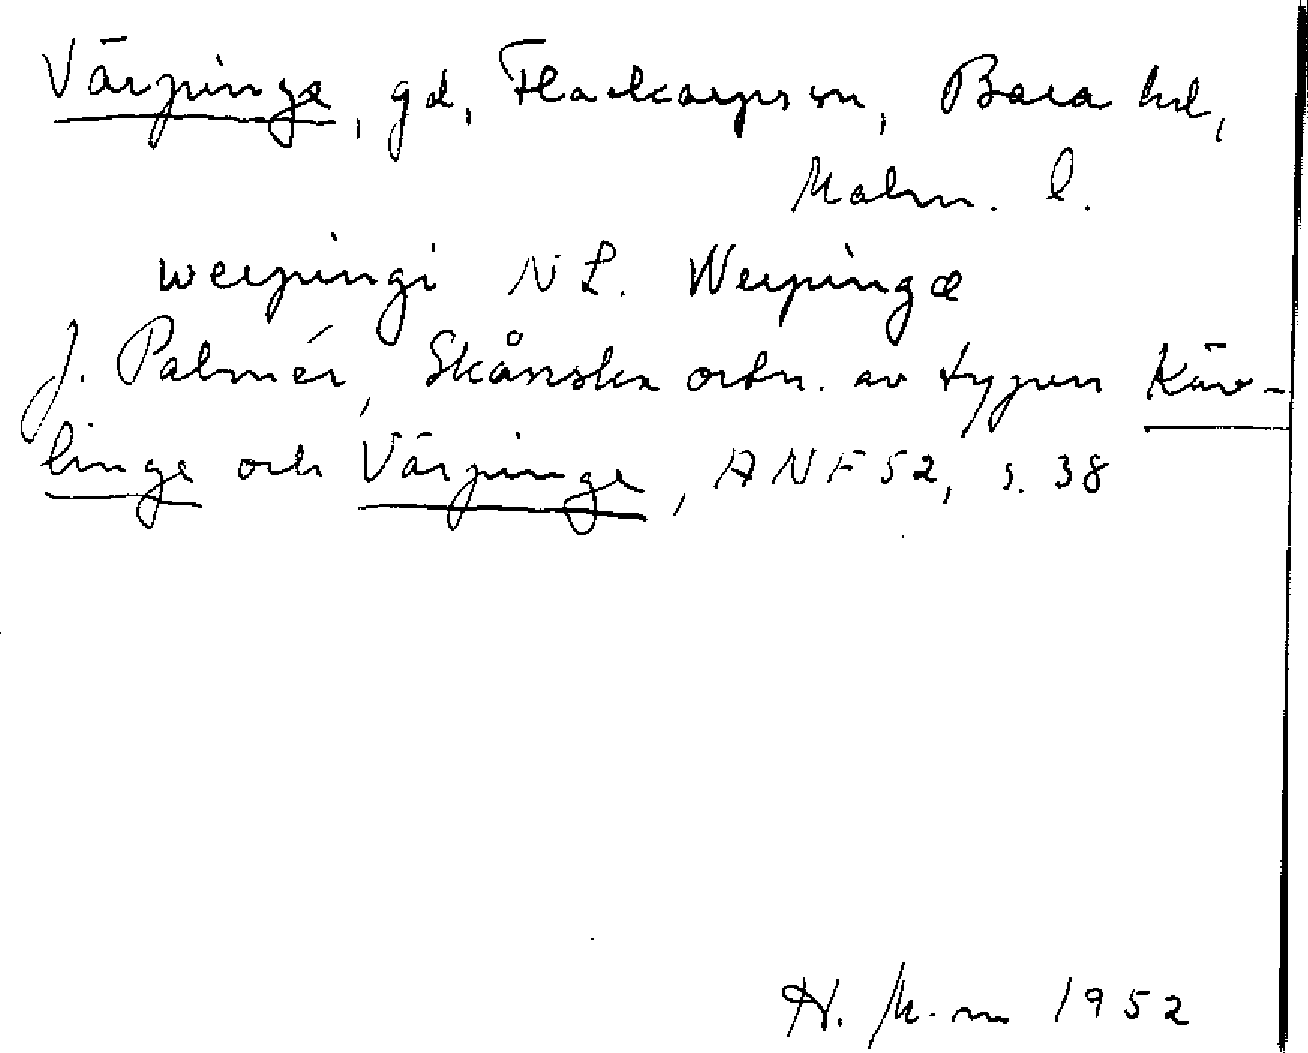 Värpinge, gd, Flackarps sn, Bara hd,
Malm. l.
werpingi NL. Werpingæ
J. Palmér, Skånska ortn. av typen Käv-
linge och Värpinge, ANF 52, s. 38
H. M-m 1952